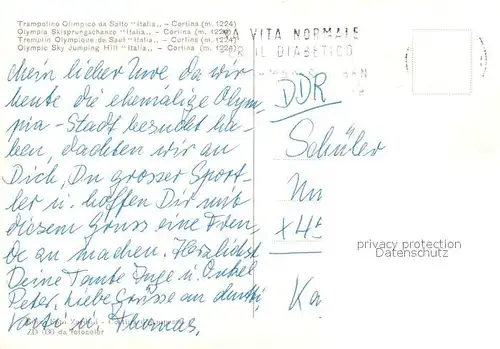 Trampolino Olimpico da Salto "Italia„ - Cortina (m. 1224)
Olympia Skisprungschance "Italia„ - Cortina (m. 1224)
Tremplin Olympique de Saut "Italia„ - Cortina (m. 1224)
Olympic Sky Jumping Hill "Italia„ - Cortina (m. 1224)
VITA NORMALE
IL DIABETICO
Mein lieber Uwe da wir
heute die ehemalige Olym-
pia-Stadt besucht ha-
ben, dachten wir an
Dich, Du grosser Sport-
ler u. hoffen Dir mit
diesem Gruss eine Freu-
de an machen. Herzlichst
Deine Tante Inge u. Onkel
Peter, liebe Grüsse an
u. Thomas.
DDR
Schüler
X45
Ka
privacy protection
Datenschutz
da fotocolor